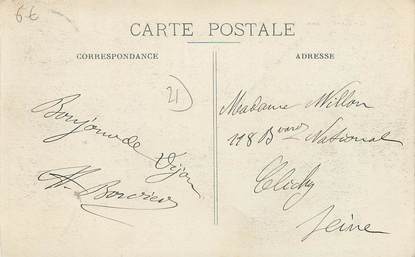 6€
CARTE POSTALE
CORRESPONDANCE
ADRESSE
21
Bonjour de Dijon
Madame Millon
118 Bvard National
Clichy
Seine